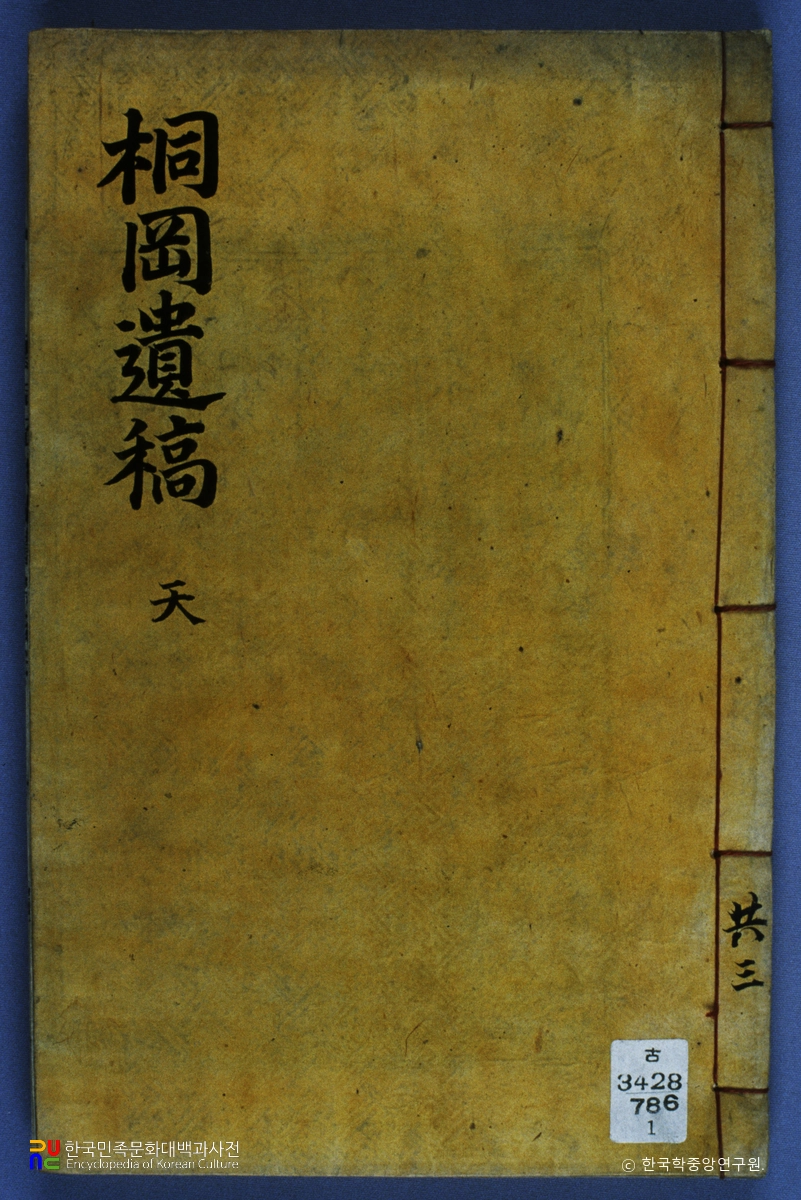 桐岡遺稿
天
共三
古
3428
786
1
한국민족문화대백과사전
Encyclopedia of Korean Culture
© 한국학중앙연구원.